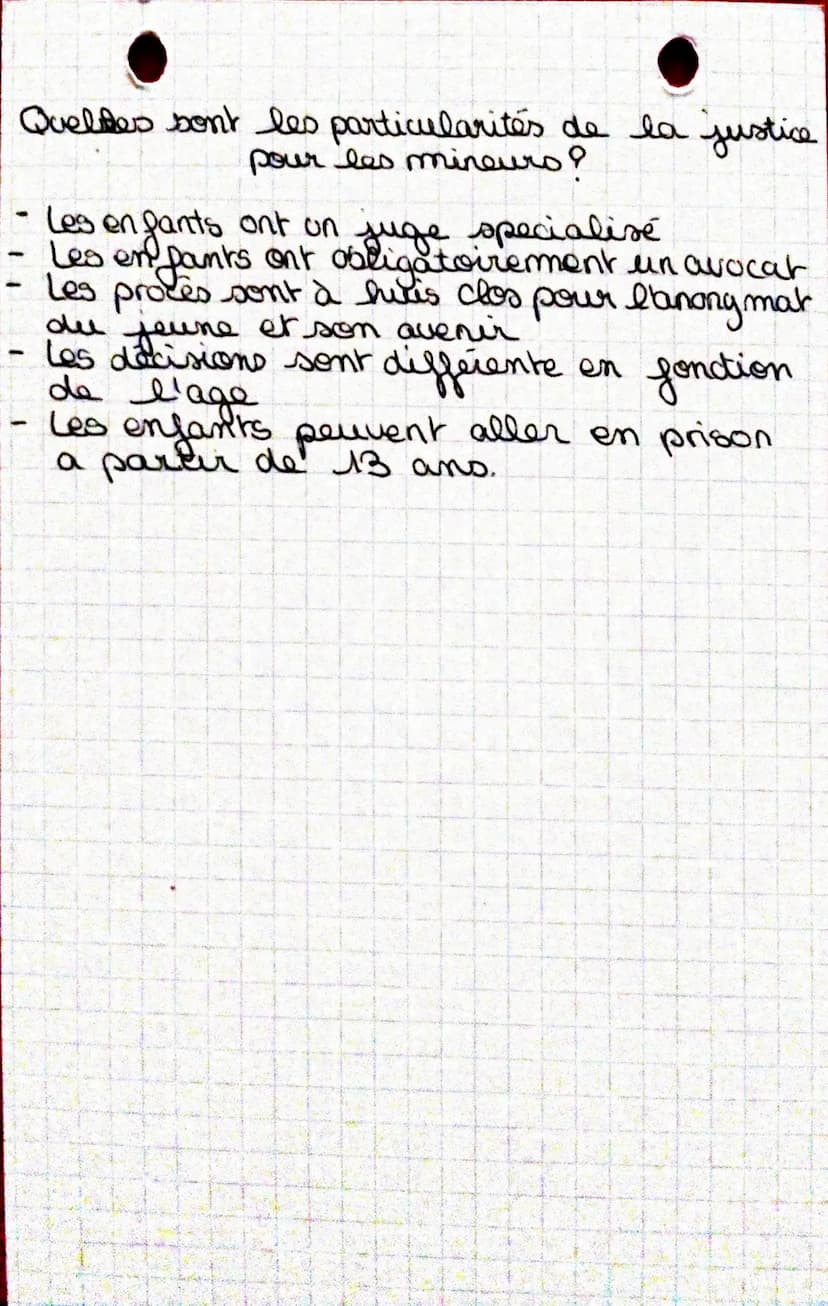 Quelles sont les particularités de la justice
pour les mineurs?
- Les enfants ont un juge specialisé
- Les enfants ont obligatoirement un avocat
- Les procès sont à huis clos pour l'anonymat
du jeune et son avenir
- Les décisions sont différente en fonction
de l'age
- Les enfants peuvent aller en prison
a partir de 13 ans.